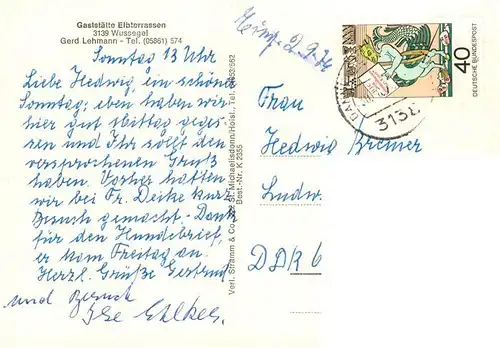 Gaststätte Elbterrassen
3139 Wussegel
Gerd Lehmann - Tel. (05861) 574
Sonntag 13 Uhr
Liebe Hedwig, ein schönen
Sonntag, eben haben wir
hier gut Mittag geges-
sen und Ihr sollt den
versprochenen Gruß
haben. Vorher hatten
wir bei Fr. Deike kurz
Besuch gemacht. - Dank
für den Hundebrief,
er kam Freitag an.
Herzl. Grüße Gertrud
und
Ilse
Verl. Stramm & Co., St. Michaelisdonn/Holst., Tel.
Best.-Nr. K 2365
2.9.
40
DEUTSCHE BUNDESPOST
313
Frau
Hedwig Bremer
Ludw.
DDR 6